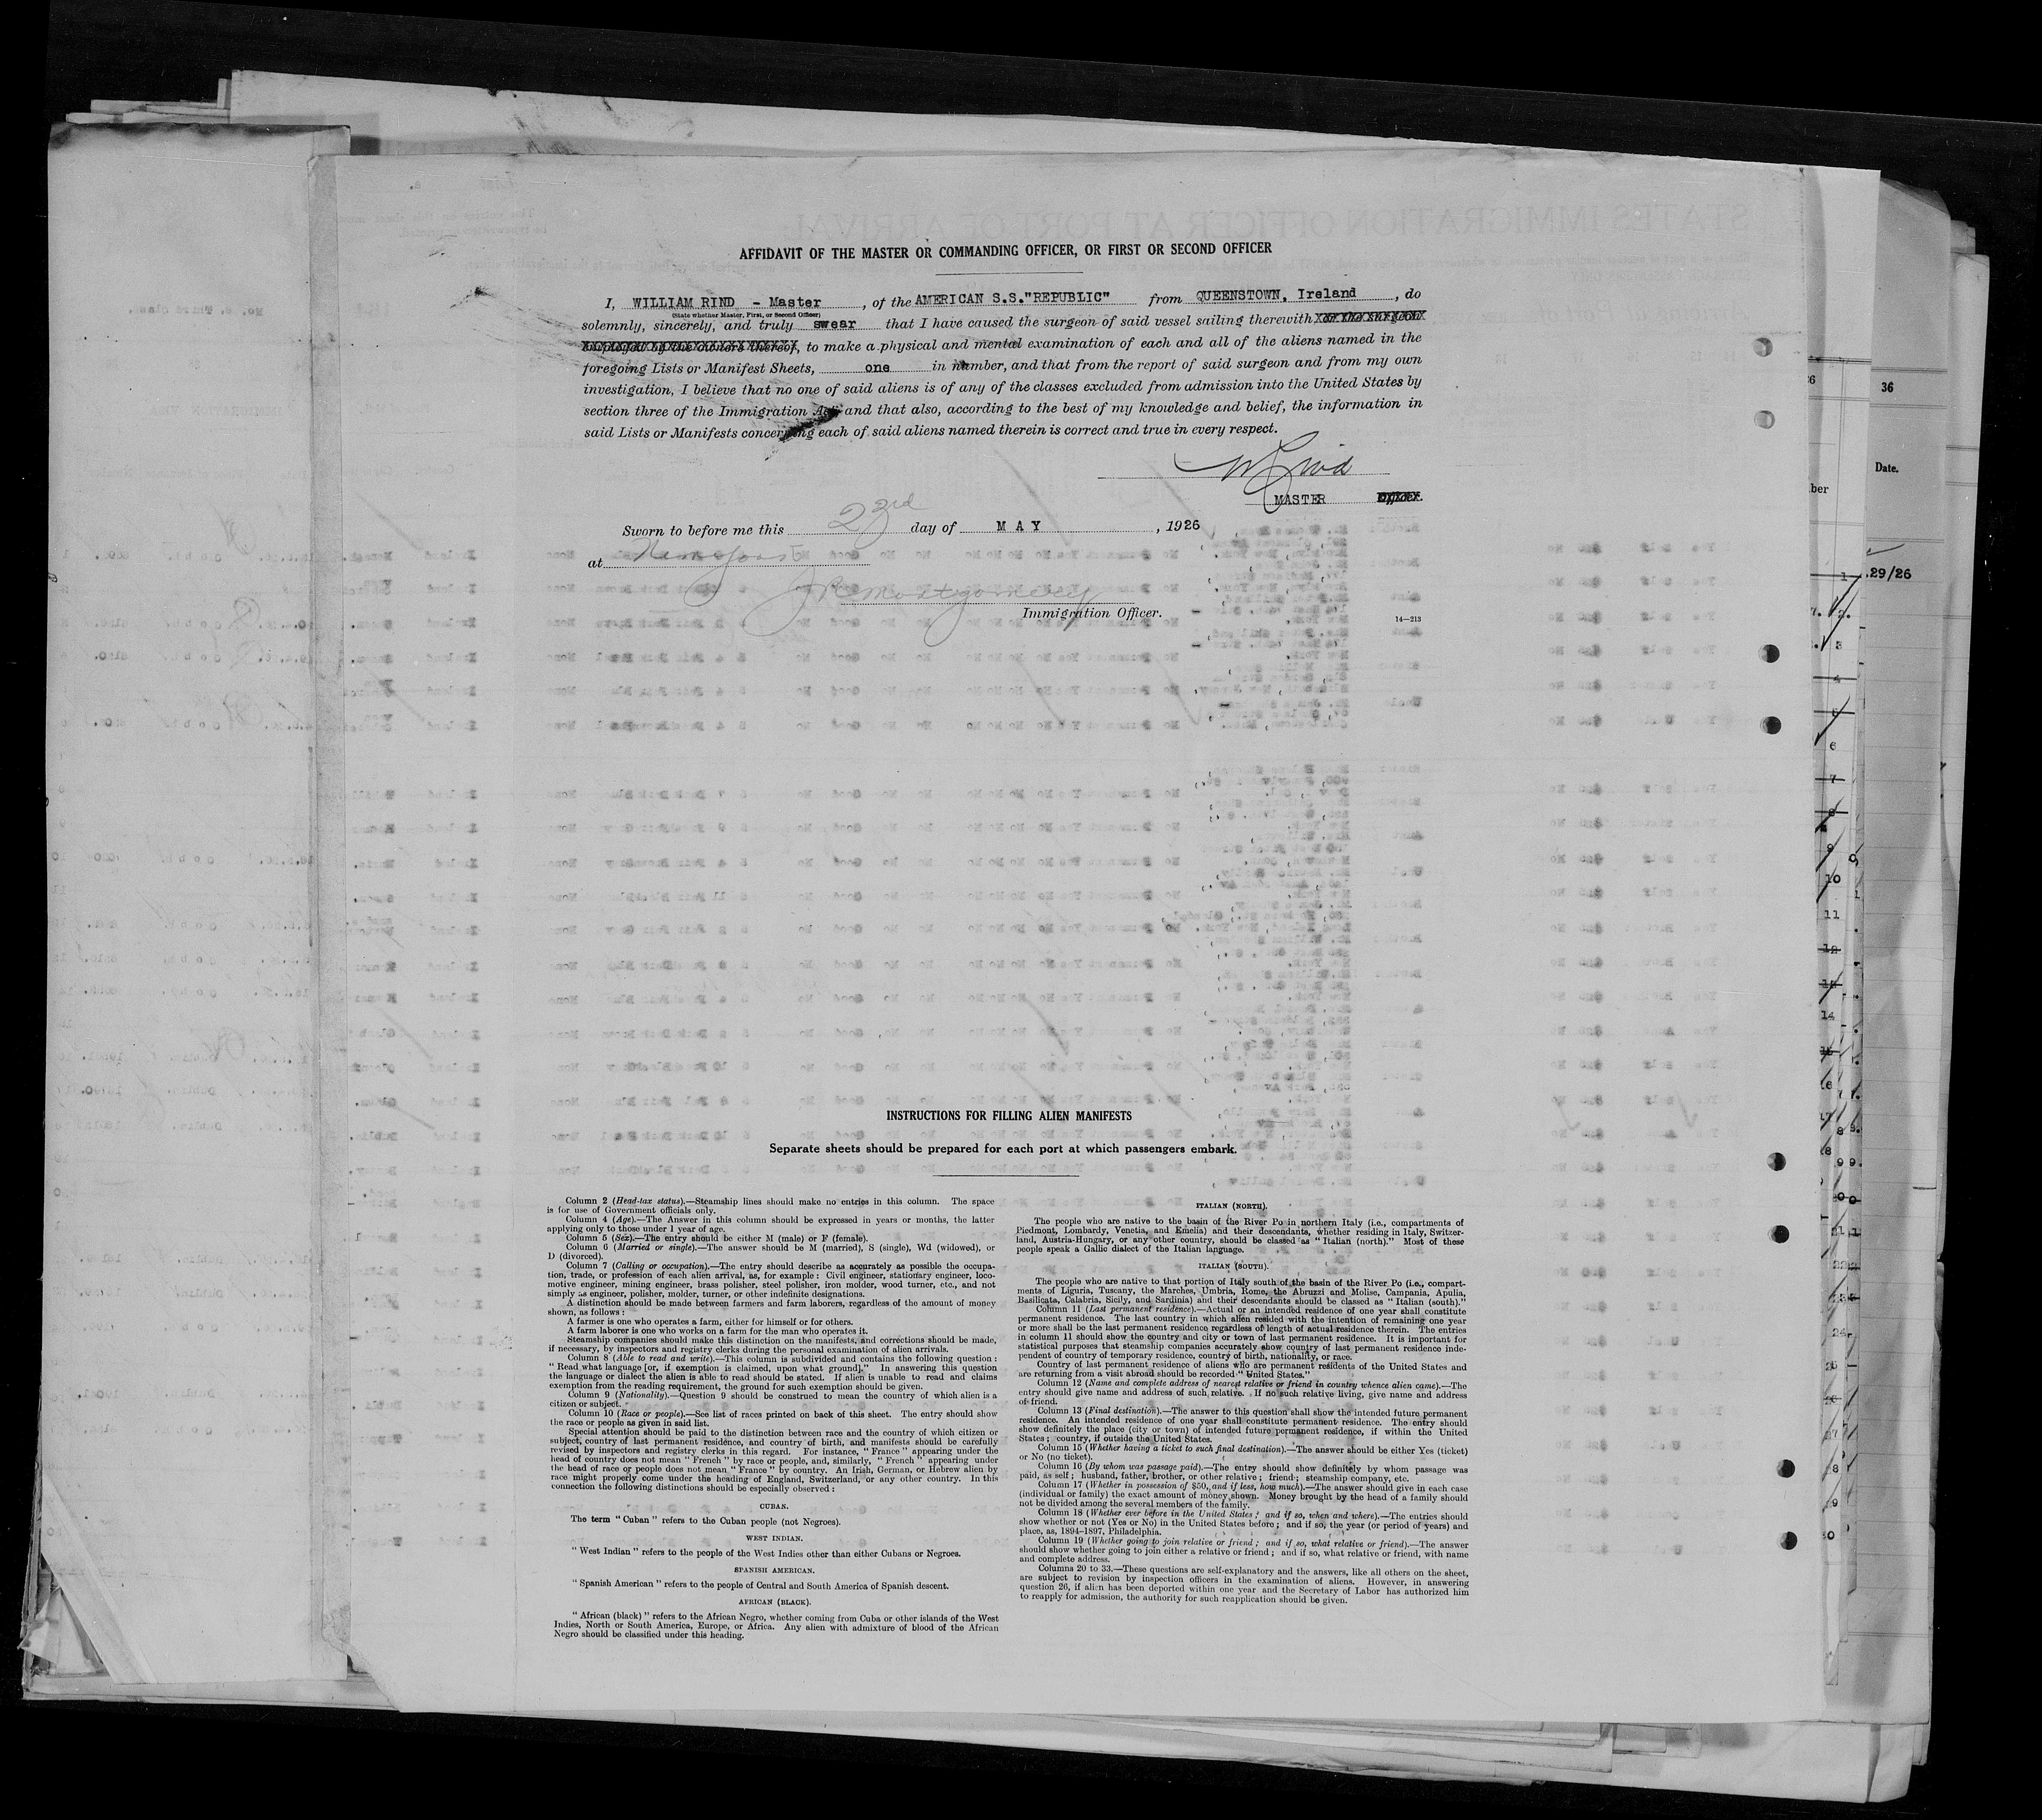 AFFIDAVIT OF THE MASTER OR COMMANDING OFFICER, OR FIRST OR SECOND OFFICER
I, WILLIAM RIND - Master, of the AMERICAN S.S."REPUBLIC" from QUEENSTOWN, Ireland, do
(State whether Master, First, or Second Officer)
solemnly, sincerely, and truly swear that I have caused the surgeon of said vessel sailing therewith
to make a physical and mental examination of each and all of the aliens named in the
foregoing Lists or Manifest Sheets, one in number, and that from the report of said surgeon and from my own
investigation, I believe that no one of said aliens is of any of the classes excluded from admission into the United States by
section three of the Immigration Act, and that also, according to the best of my knowledge and belief, the information in
said Lists or Manifests concerning each of said aliens named therein is correct and true in every respect.
W Rind
MASTER Officer.
Sworn to before me this 23rd day of MAY, 1926
at New York
J R Montgomery
Immigration Officer.
14—213
INSTRUCTIONS FOR FILLING ALIEN MANIFESTS
Separate sheets should be prepared for each port at which passengers embark.
Column 2 (Head-tax status).—Steamship lines should make no entries in this column. The space
is for use of Government officials only.
Column 4 (Age).—The Answer in this column should be expressed in years or months, the latter
applying only to those under 1 year of age.
Column 5 (Sex).—The entry should be either M (male) or F (female).
Column 6 (Married or single).—The answer should be M (married), S (single), Wd (widowed), or
D (divorced).
Column 7 (Calling or occupation).—The entry should describe as accurately as possible the occupa-
tion, trade, or profession of each alien arrival, as, for example: Civil engineer, stationary engineer, loco-
motive engineer, mining engineer, brass polisher, steel polisher, iron molder, wood turner, etc., and not
simply as engineer, polisher, molder, turner, or other indefinite designations.
A distinction should be made between farmers and farm laborers, regardless of the amount of money
shown, as follows:
A farmer is one who operates a farm, either for himself or for others.
A farm laborer is one who works on a farm for the man who operates it.
Steamship companies should make this distinction on the manifests, and corrections should be made,
if necessary, by inspectors and registry clerks during the personal examination of alien arrivals.
Column 8 (Able to read and write).—This column is subdivided and contains the following question:
"Read what language [or, if exemption is claimed, upon what ground]." In answering this question
the language or dialect the alien is able to read should be stated. If alien is unable to read and claims
exemption from the reading requirement, the ground for such exemption should be given.
Column 9 (Nationality).—Question 9 should be construed to mean the country of which alien is a
citizen or subject.
Column 10 (Race or people).—See list of races printed on back of this sheet. The entry should show
the race or people as given in said list.
Special attention should be paid to the distinction between race and the country of which citizen or
subject, country of last permanent residence, and country of birth, and manifests should be carefully
revised by inspectors and registry clerks in this regard. For instance, "France" appearing under the
head of country does not mean "French" by race or people, and, similarly, "French" appearing under
the head of race or people does not mean "France" by country. An Irish, German, or Hebrew alien by
race might properly come under the heading of England, Switzerland, or any other country. In this
connection the following distinctions should be especially observed:
CUBAN.
The term "Cuban" refers to the Cuban people (not Negroes).
WEST INDIAN.
"West Indian" refers to the people of the West Indies other than either Cubans or Negroes.
SPANISH AMERICAN.
"Spanish American" refers to the people of Central and South America of Spanish descent.
AFRICAN (BLACK).
"African (black)" refers to the African Negro, whether coming from Cuba or other islands of the West
Indies, North or South America, Europe, or Africa. Any alien with admixture of blood of the African
Negro should be classified under this heading.
ITALIAN (NORTH).
The people who are native to the basin of the River Po in northern Italy (i.e., compartments of
Piedmont, Lombardy, Venetia, and Emelia) and their descendants, whether residing in Italy, Switzer-
land, Austria-Hungary, or any other country, should be classed as "Italian (north)." Most of these
people speak a Gallic dialect of the Italian language.
ITALIAN (SOUTH).
The people who are native to that portion of Italy south of the basin of the River Po (i.e., compart-
ments of Liguria, Tuscany, the Marches, Umbria, Rome, the Abruzzi and Molise, Campania, Apulia,
Basilicata, Calabria, Sicily, and Sardinia) and their descendants should be classed as "Italian (south)."
Column 11 (Last permanent residence).—Actual or an intended residence of one year shall constitute
permanent residence. The last country in which alien resided with the intention of remaining one year
or more shall be the last permanent residence regardless of length of actual residence therein. The entries
in column 11 should show the country and city or town of last permanent residence. It is important for
statistical purposes that steamship companies accurately show country of last permanent residence inde-
pendent of country of temporary residence, country of birth, nationality, or race.
Country of last permanent residence of aliens who are permanent residents of the United States and
are returning from a visit abroad should be recorded "United States."
Column 12 (Name and complete address of nearest relative or friend in country whence alien came).—The
entry should give name and address of such relative. If no such relative living, give name and address
of friend.
Column 13 (Final destination).—The answer to this question shall show the intended future permanent
residence. An intended residence of one year shall constitute permanent residence. The entry should
show definitely the place (city or town) of intended future permanent residence, if within the United
States; country, if outside the United States.
Column 15 (Whether having a ticket to such final destination).—The answer should be either Yes (ticket)
or No (no ticket).
Column 16 (By whom was passage paid).—The entry should show definitely by whom passage was
paid, as self; husband, father, brother, or other relative; friend; steamship company, etc.
Column 17 (Whether in possession of $50, and if less, how much).—The answer should give in each case
(individual or family) the exact amount of money shown. Money brought by the head of a family should
not be divided among the several members of the family.
Column 18 (Whether ever before in the United States; and if so, when and where).—The entries should
show whether or not (Yes or No) in the United States before; and if so, the year (or period of years) and
place, as, 1894–1897, Philadelphia.
Column 19 (Whether going to join relative or friend; and if so, what relative or friend).—The answer
should show whether going to join either a relative or friend; and if so, what relative or friend, with name
and complete address.
Columns 20 to 33.—These questions are self-explanatory and the answers, like all others on the sheet,
are subject to revision by inspection officers in the examination of aliens. However, in answering
question 26, if alien has been deported within one year and the Secretary of Labor has authorized him
to reapply for admission, the authority for such reapplication should be given.
36
Date.
29/26